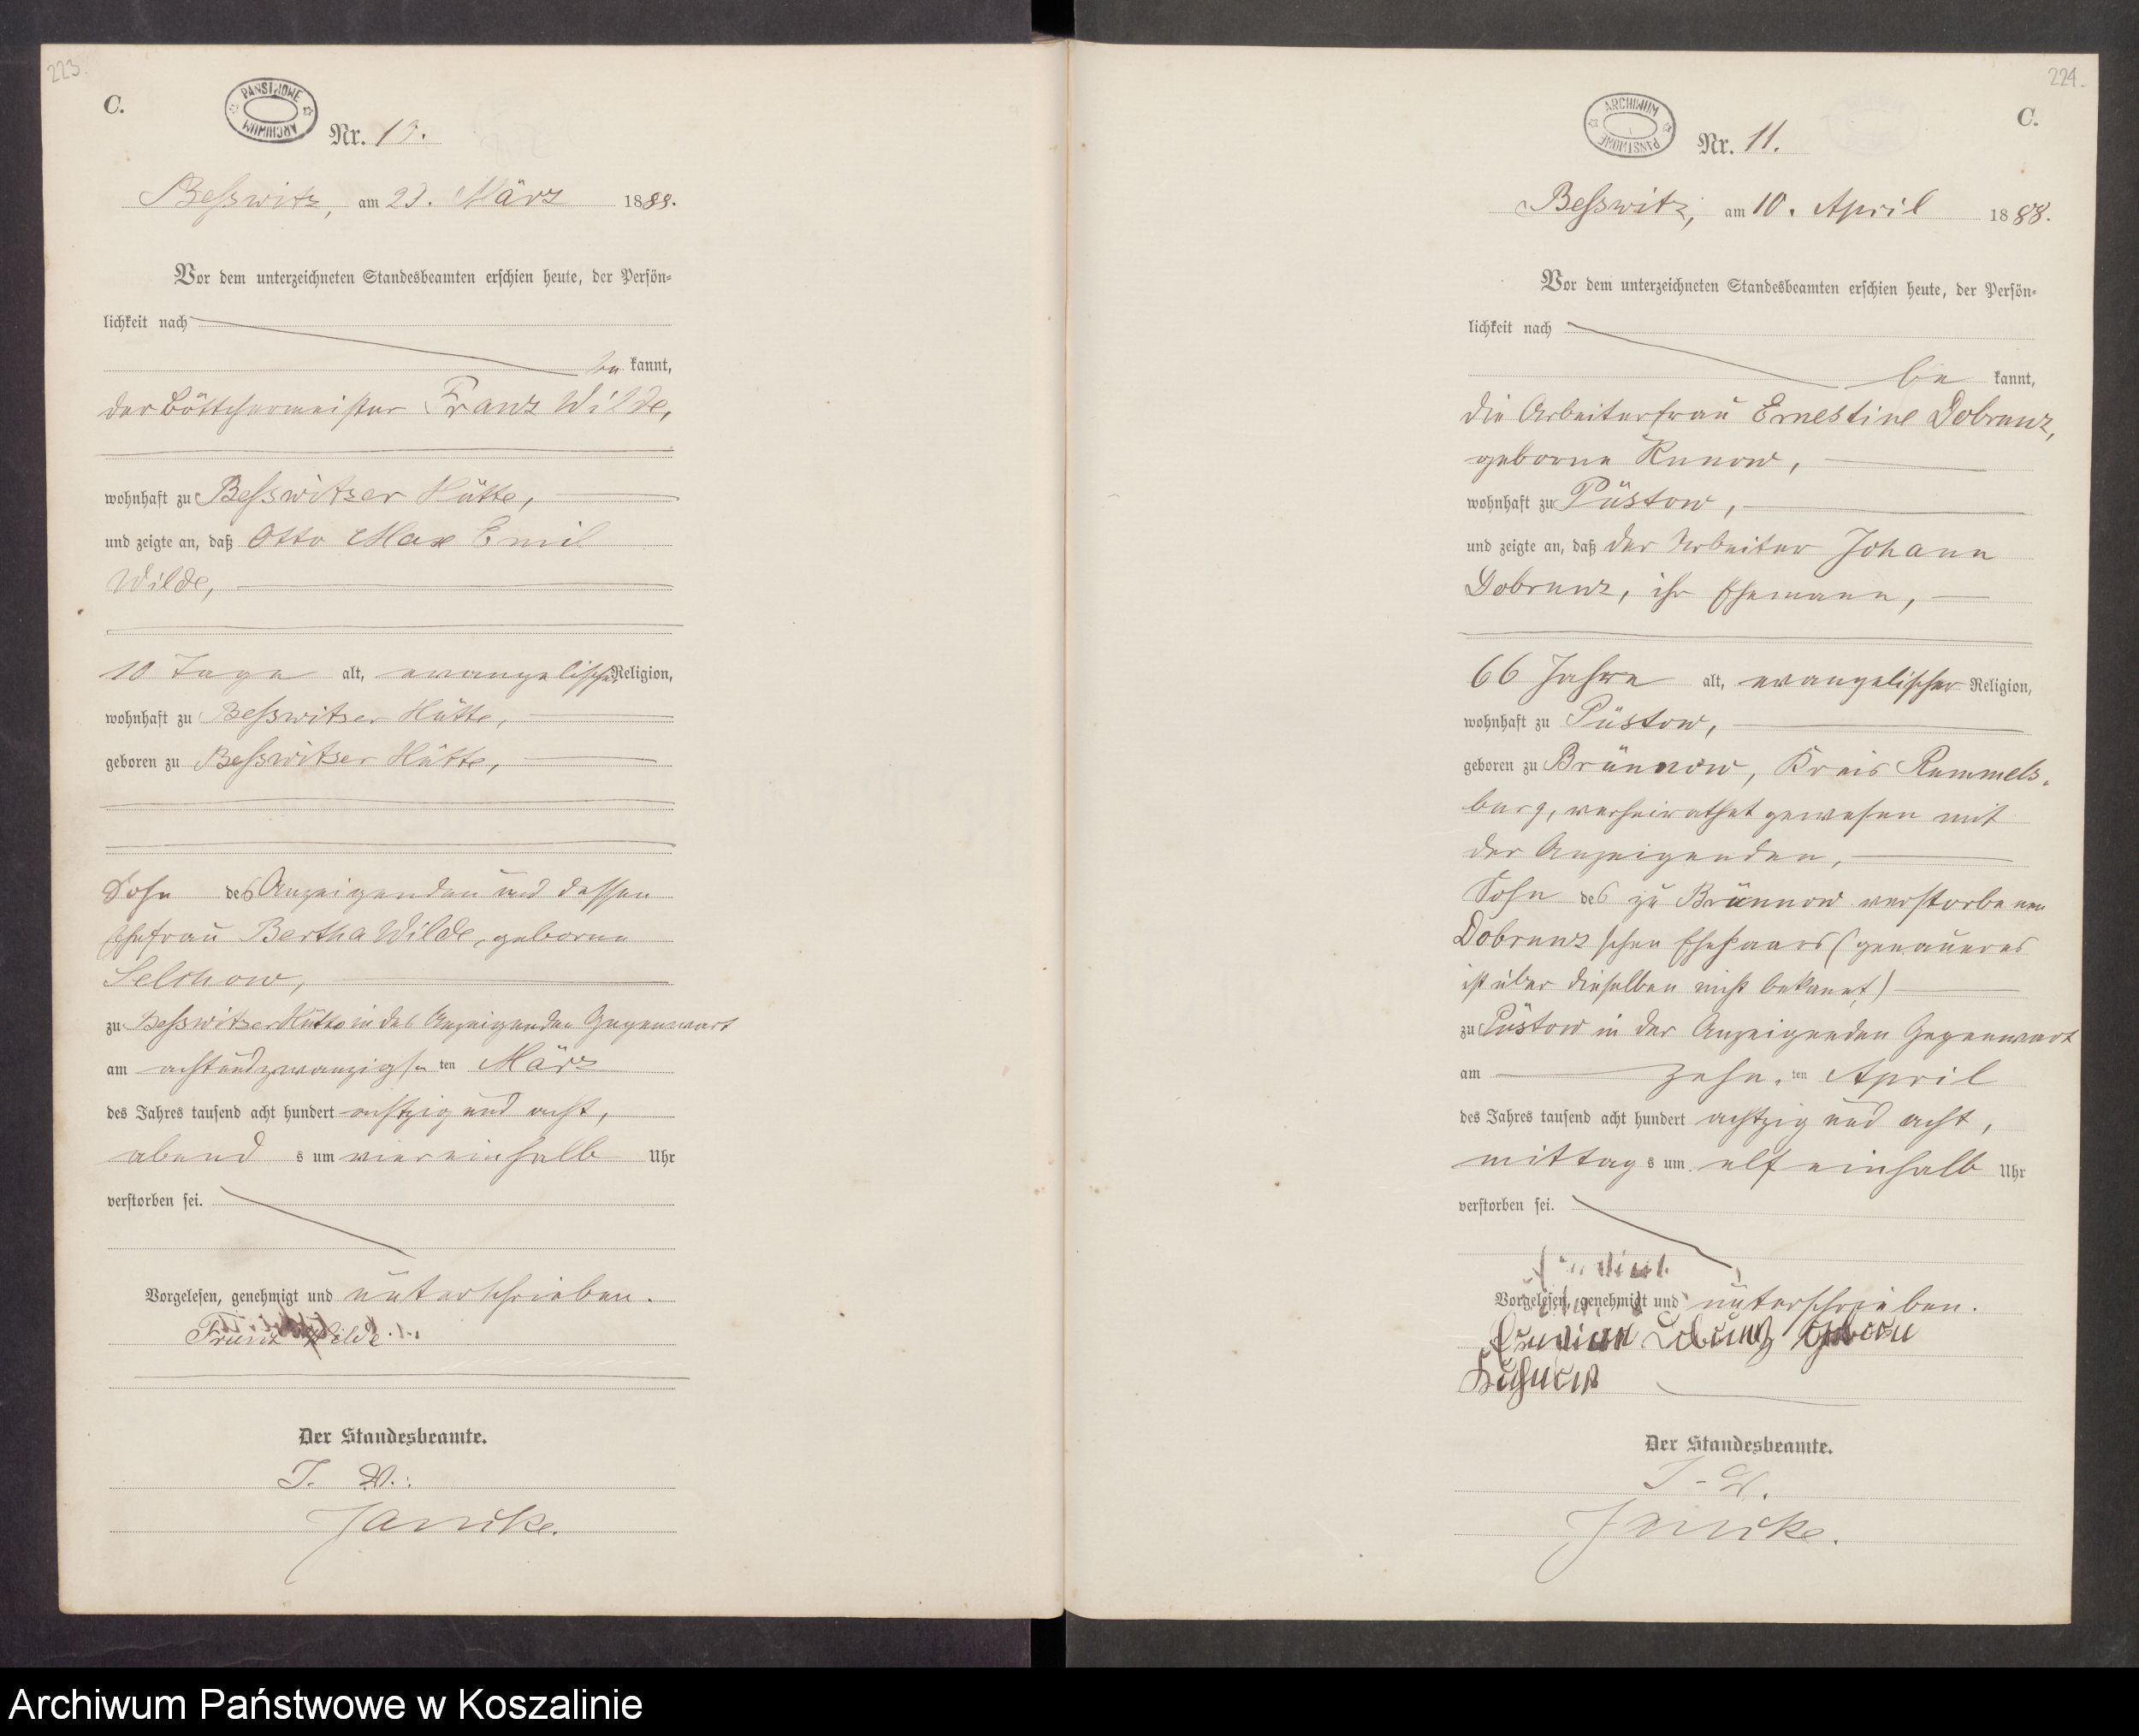 223.
C.
PAŃSTWOWE ARCHIWUM
Nr. 10.
Beßwitz, am 29. März 1888.
Vor dem unterzeichneten Standesbeamten erschien heute, der Persön-
lichkeit nach
be kannt,
der Böttchermeister Franz Wilde,
wohnhaft zu Beßwitzer Hütte,
und zeigte an, daß Otto Max Emil
Wilde,
10 Tage alt, evangelischer Religion,
wohnhaft zu Beßwitzer Hütte,
geboren zu Beßwitzer Hütte,
Sohn des Anzeigenden und dessen
Ehefrau Bertha Wilde, geborne
Selchow,
zu Beßwitzer Hütte in des Anzeigenden Gegenwart
am achtundzwanzigsten März
des Jahres tausend acht hundert achtzig und acht,
abends um vier einhalb Uhr
verstorben sei.
Vorgelesen, genehmigt und unterschrieben.
Franz Wilde
Der Standesbeamte.
J. V.:
Jancke.
224.
C.
ARCHIWUM PAŃSTWOWE
Nr. 11.
Beßwitz, am 10. April 1888.
Vor dem unterzeichneten Standesbeamten erschien heute, der Persön-
lichkeit nach
be kannt,
die Arbeiterfrau Ernestine Dobrunz,
geborne Kunow,
wohnhaft zu Püstow,
und zeigte an, daß der Arbeiter Johann
Dobrunz, ihr Ehemann,
66 Jahre alt, evangelischer Religion,
wohnhaft zu Püstow,
geboren zu Brünnow, Kreis Rummels-
burg, verheirathet gewesen mit
der Anzeigenden,
Sohn des zu Brünnow verstorbenen
Dobrunz'schen Ehepaars (genaueres
ist über dieselben nicht bekannt)
zu Püstow in der Anzeigenden Gegenwart
am zehnten April
des Jahres tausend acht hundert achtzig und acht,
mittags um elf einhalb Uhr
verstorben sei.
Vorgelesen, genehmigt und unterschrieben.
Dobrunz geboren
Der Standesbeamte.
J. V.
Jancke.
Archiwum Państwowe w Koszalinie